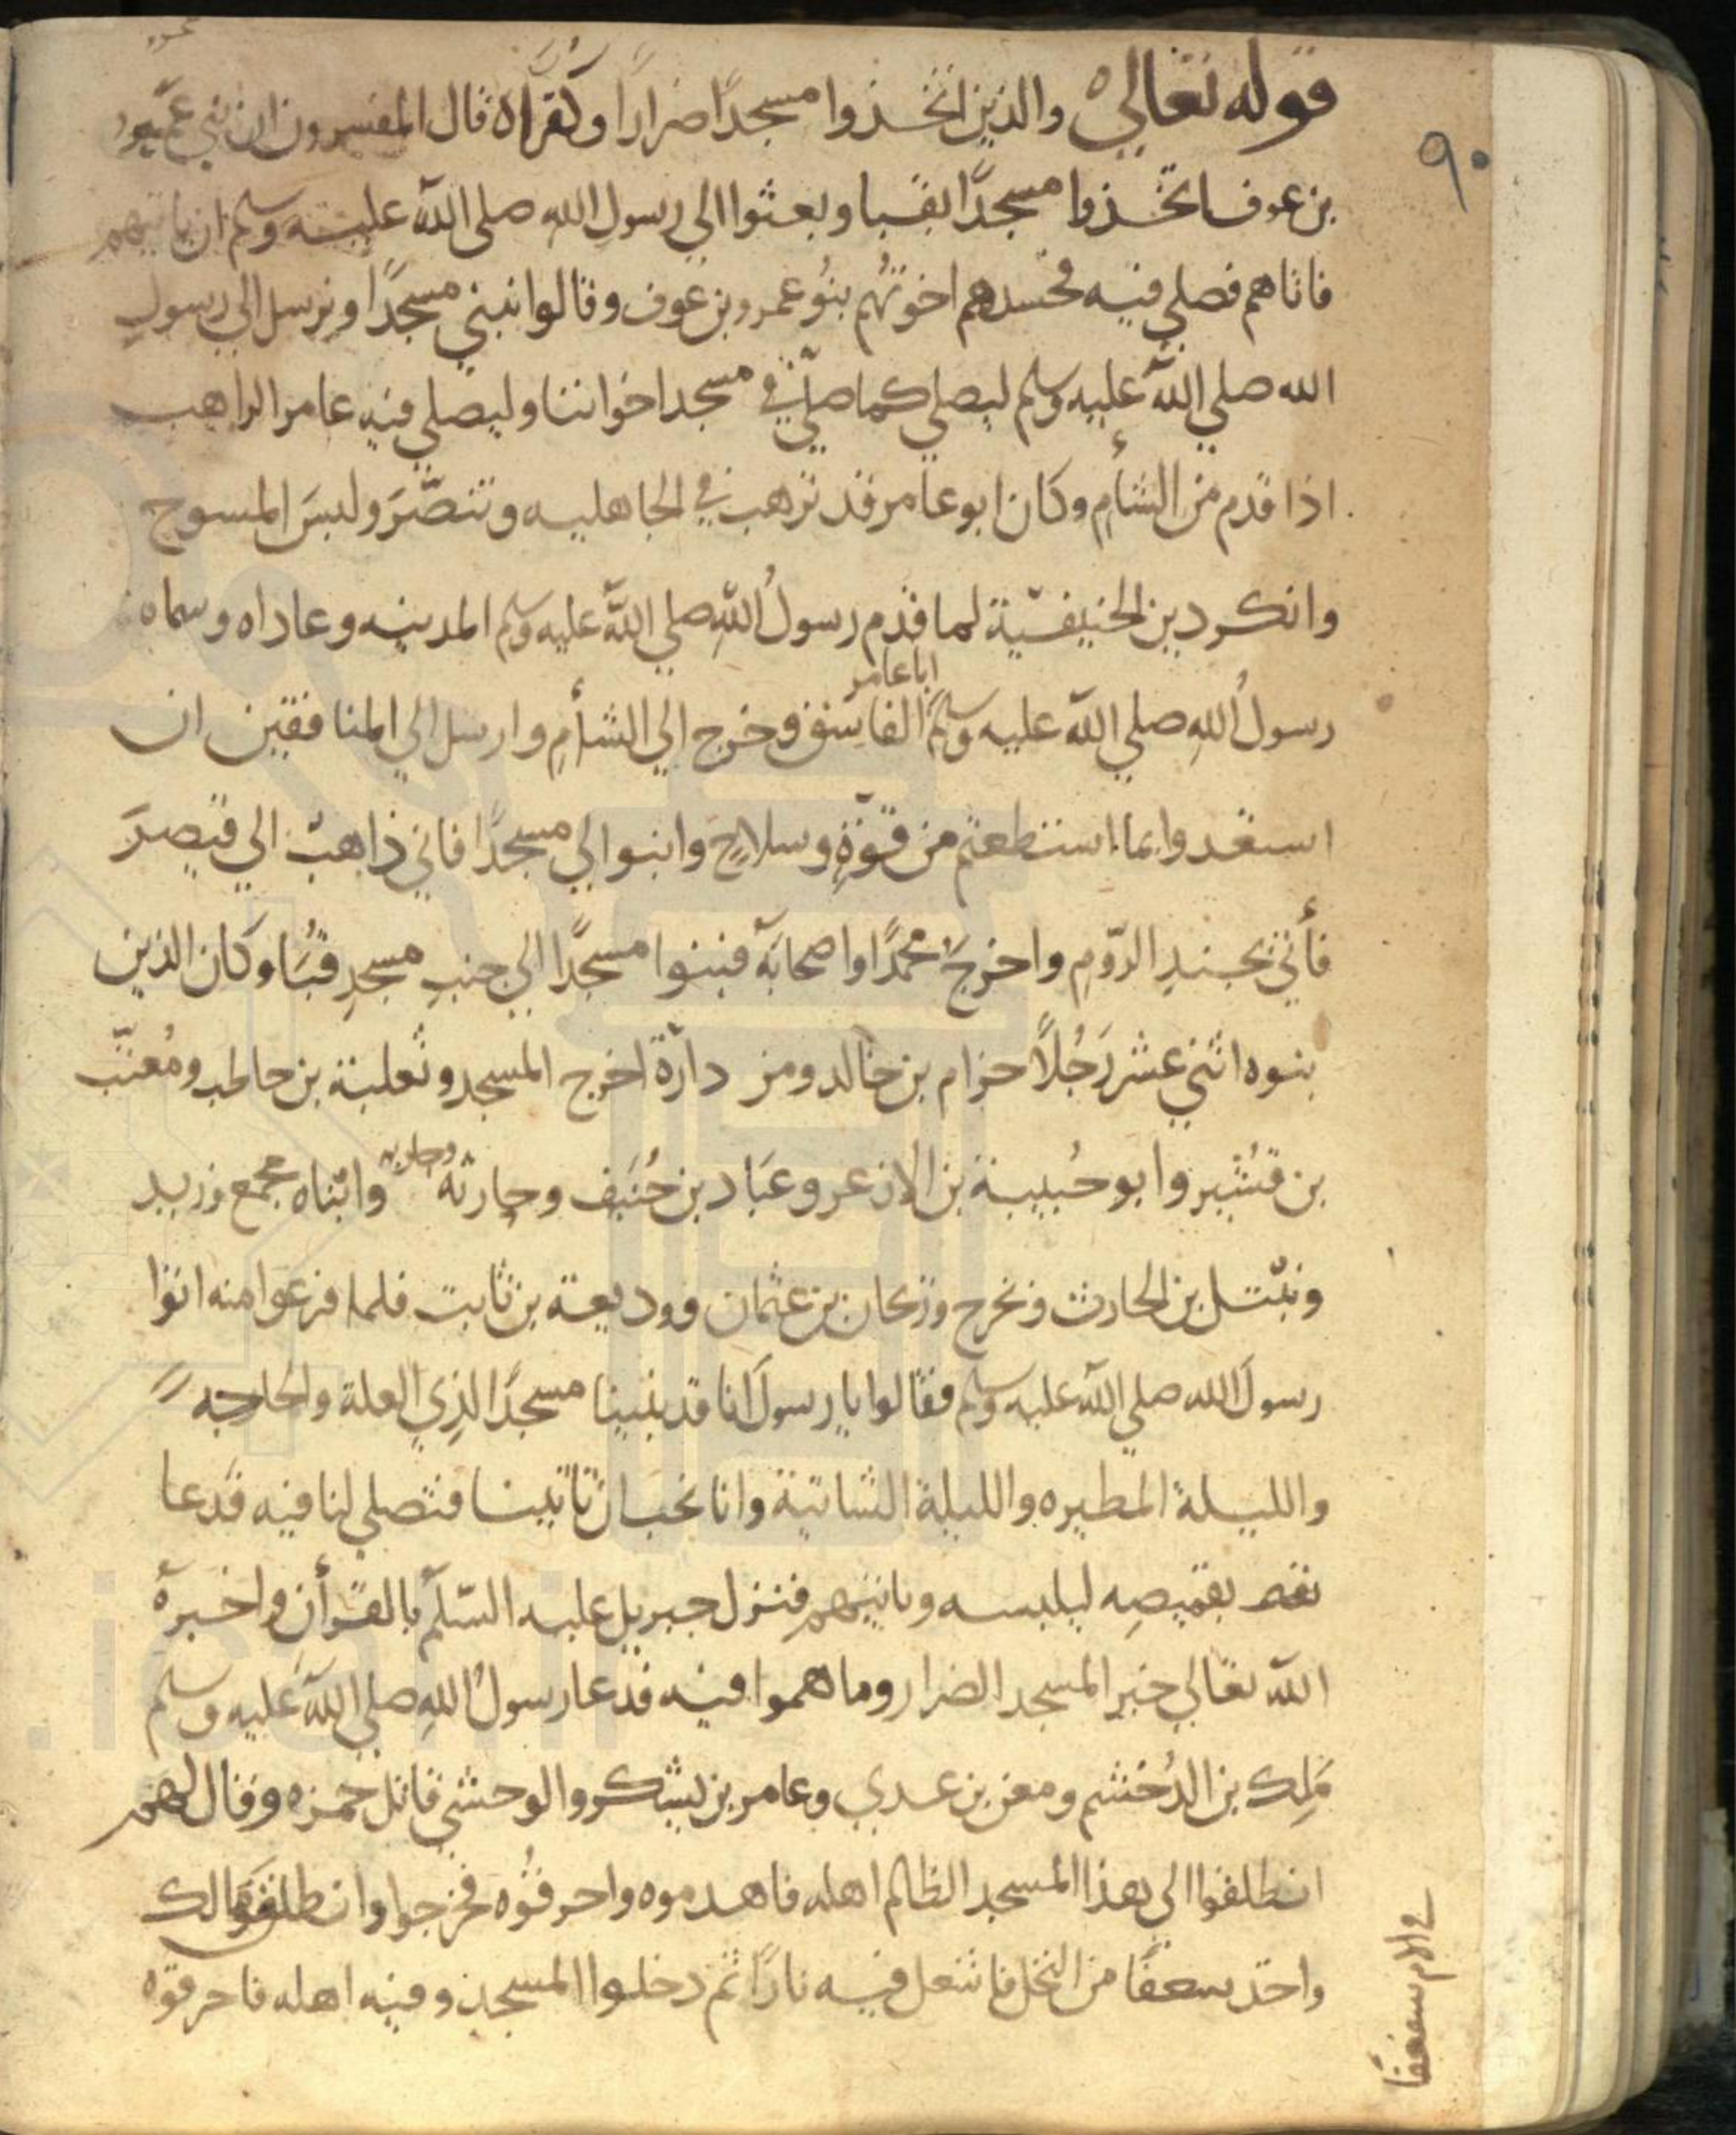 قوله تعالي والذين اتخذوا مسجدًا ضرارًا وكفرًا ه قال المفسرون ان بني عمرو
٩٠
بن عوف اتخذوا مسجدًا بقبا وبعثوا الي رسولِ الله صلي اللّه عليه وسلم ان ياتيهم
فاتاهم فصلي فيه فحسدهم اخوتُهم بنُو عمرو بن عوف وقالوا نبني مسجدًا ونرسل الي رسولِ
الله صلي اللّه عليه وسلم ليصلي كما صلّي في مسجد اخواننا وليصلي فيه عامر الراهب
اذا قدم من الشأمِ وكان ابو عامر قد ترهب في الجاهليه وتنصّرَ ولبسَ المسوح
وانكر دين الحنيفيّة لما قدم رسولُ اللّه صلي اللّه عليه وسلم المدينه وعاداه وسماه
ابا عامر
رسولُ اللهِ صلي اللّه عليه وسلم الفاسق وخرج الي الشأمِ وارسل الي المنافقين ان
استعدوا بما استطعتم من قوّةٍ وسلاحٍ وابنوا لي مسجدًا فاني ذاهبٌ الي قيصرَ
فأتي بجندِ الرّومِ واخرج محمدًا واصحابَه فبنوا مسجدًا الي جنبِ مسجدِ قُبَا وكان الذين
بنوه اثني عشر رَجُلًا حزام بن خالد ومن دارة اخرج المسجد وثعلبة بن حاطب ومُعتّب
بن قُشير وابو حُبيبة بن الازعر وعَباد بن حُنَيف وجارثة وابناه مجمع وزيد
ونبْتل بن الحارث وبخرج وبحان بن عثمان ووديعة بن ثابت فلما فرغوا منه اتوا
رسولَ الله صلي اللّه عليه وسلم فقالوا يا رسولَ انا قد بنينا مسجدًا لذِي العلة والحاجه
والليلة المطيره والليلة الشاتية وانا نحب ان تاتينا فتصلي لنا فيه فدعا
بقميصِه ليلبسه وياتيهم فنزل جبريل عليه السّلَم بالقرأن واخبره
اللّه تعَالي خبر المسجد الضرار وما هموا فيه فدعا رسولُ اللهِ صلي اللّه عليه وسلم
مَلِك بن الدُخشم ومعن بن عدي وعامر بن يشكر والوحشي قاتل حمزه وقال لهم
انطلقوا الي هذا المسجد الظالم اهله فاهدموه واحرقُوه فخرجوا وانطلق مالك
واخذ سعفًا من النخل فاشعل فيه نارًا ثم دخلوا المسجد وفيه اهله فاحرقوه
في الام سعفا